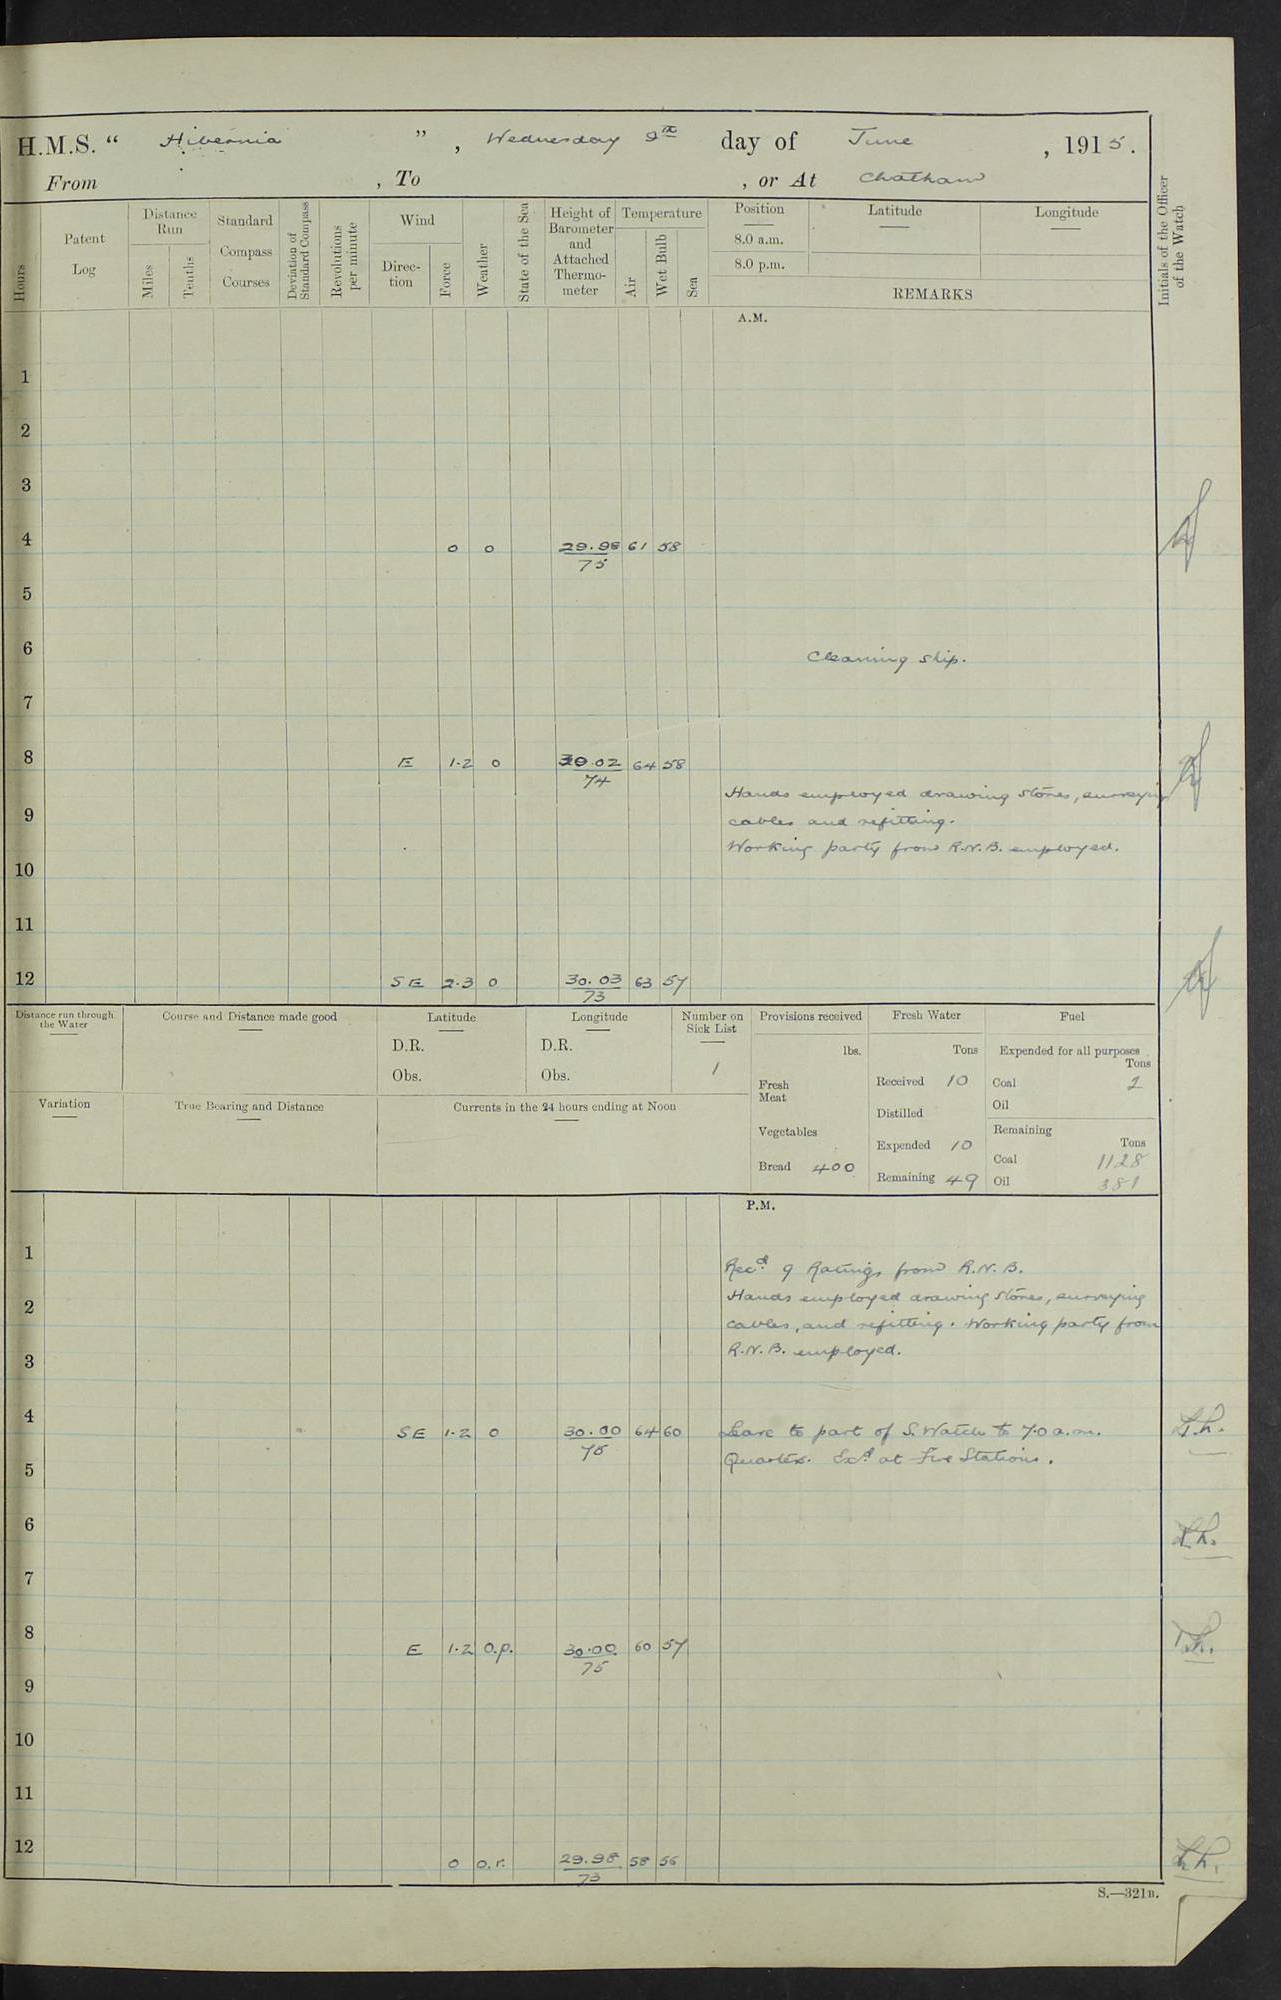 H.M.S. “ Hibernia ”, Wednesday 9th day of June, 1915.
From , To , or At Chatham
Hours
Patent Log
Distance Run
Miles
Tenths
Standard Compass Courses
Deviation of Standard Compass
Revolutions per minute
Wind
Direc-tion
Force
Weather
State of the Sea
Height of Barometer and Attached Thermo-meter
Temperature
Air
Wet Bulb
Sea
Position
8.0 a.m.
8.0 p.m.
Latitude
Longitude
REMARKS
Initials of the Officer of the Watch
A.M.
1
2
3
4 0 0 29.98 61 58
75
5
6 Cleaning ship.
7
8 E 1.2 0 30.02 64 58
74
Hands employed drawing stores, surveying
9 cables and refitting.
Working party from R.N.B. employed.
10
11
12 SE 2.3 0 30.03 63 57
73
Distance run through the Water
Course and Distance made good
Latitude
D.R.
Obs.
Longitude
D.R.
Obs.
Number on Sick List
1
Provisions received
lbs.
Fresh Meat
Vegetables
Bread 400
Fresh Water
Tons
Received 10
Distilled
Expended 10
Remaining 49
Fuel
Expended for all purposes
Tons
Coal 2
Oil
Remaining
Tons
Coal 1128
Oil 381
Variation
True Bearing and Distance
Currents in the 24 hours ending at Noon
P.M.
1
Recd. 9 Ratings from R.N.B.
2 Hands employed drawing stores, surveying
cables, and refitting. Working party from
3 R.N.B. employed.
4 SE 1.2 0 30.00 64 60 Leave to part of S. Watch to 7.0 a.m.
75
Quarters. Exd. at Fire Stations.
5
6
7
8 E 1.2 o.p. 30.00 60 57
75
9
10
11
12 0 o.r. 29.98 58 56
73
S.—321B.